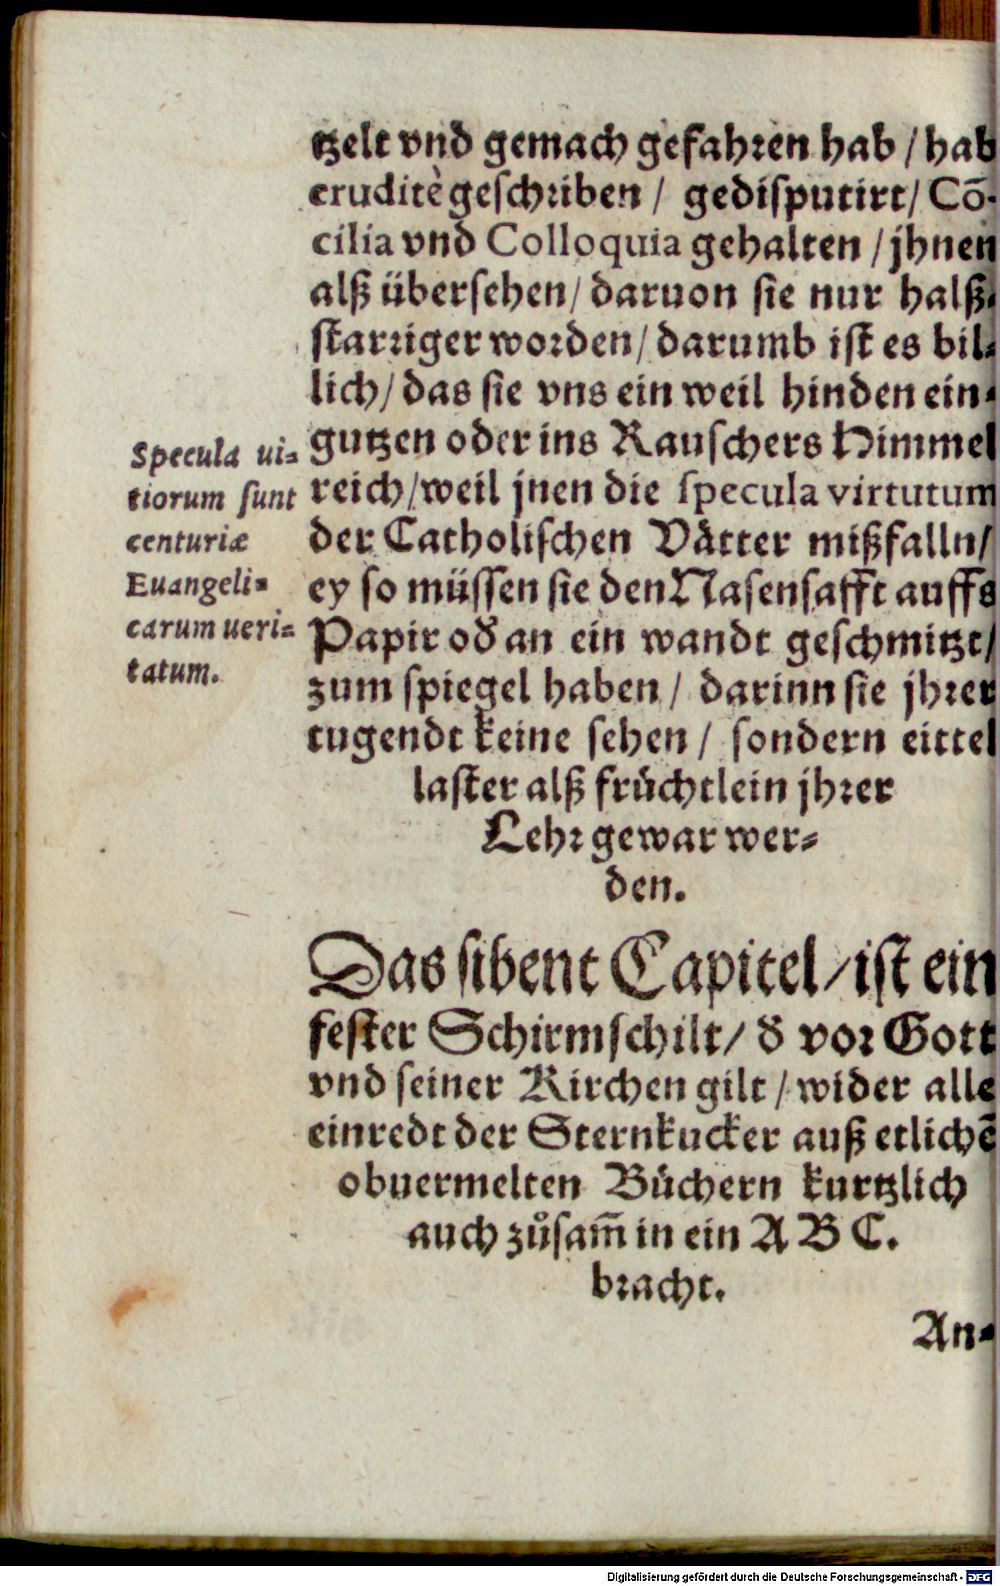 tzelt vnd gemach gefahren hab / hab
eruditè geschriben / gedisputirt / Cõ-
cilia vnd Colloquia gehalten / jhnen
alß übersehen / daruon sie nur halß-
starriger worden / darumb ist es bil-
lich / das sie vns ein weil hinden ein-
gutzen oder ins Rauschers Himmel
reich / weil jnen die specula virtutum
der Catholischen Vätter mißfalln /
ey so müssen sie den Nasensafft auffs
Papir od̕ an ein wandt geschmitzt /
zum spiegel haben / darinn sie jhrer
tugendt keine sehen / sondern eittel
laster alß früchtlein jhrer
Lehr gewar wer-
den.
Specula ui-
tiorum sunt
centuriæ
Euangeli-
carum ueri-
tatum.
Das sibent Capitel / ist ein
fester Schirmschilt / d̕ vor Gott
vnd seiner Kirchen gilt / wider alle
einredt der Sternkucker auß etlichẽ
obuermelten Büchern kurtzlich
auch zůsam̃ in ein A B C.
bracht.
An-
Digitalisierung gefördert durch die Deutsche Forschungsgemeinschaft - DFG